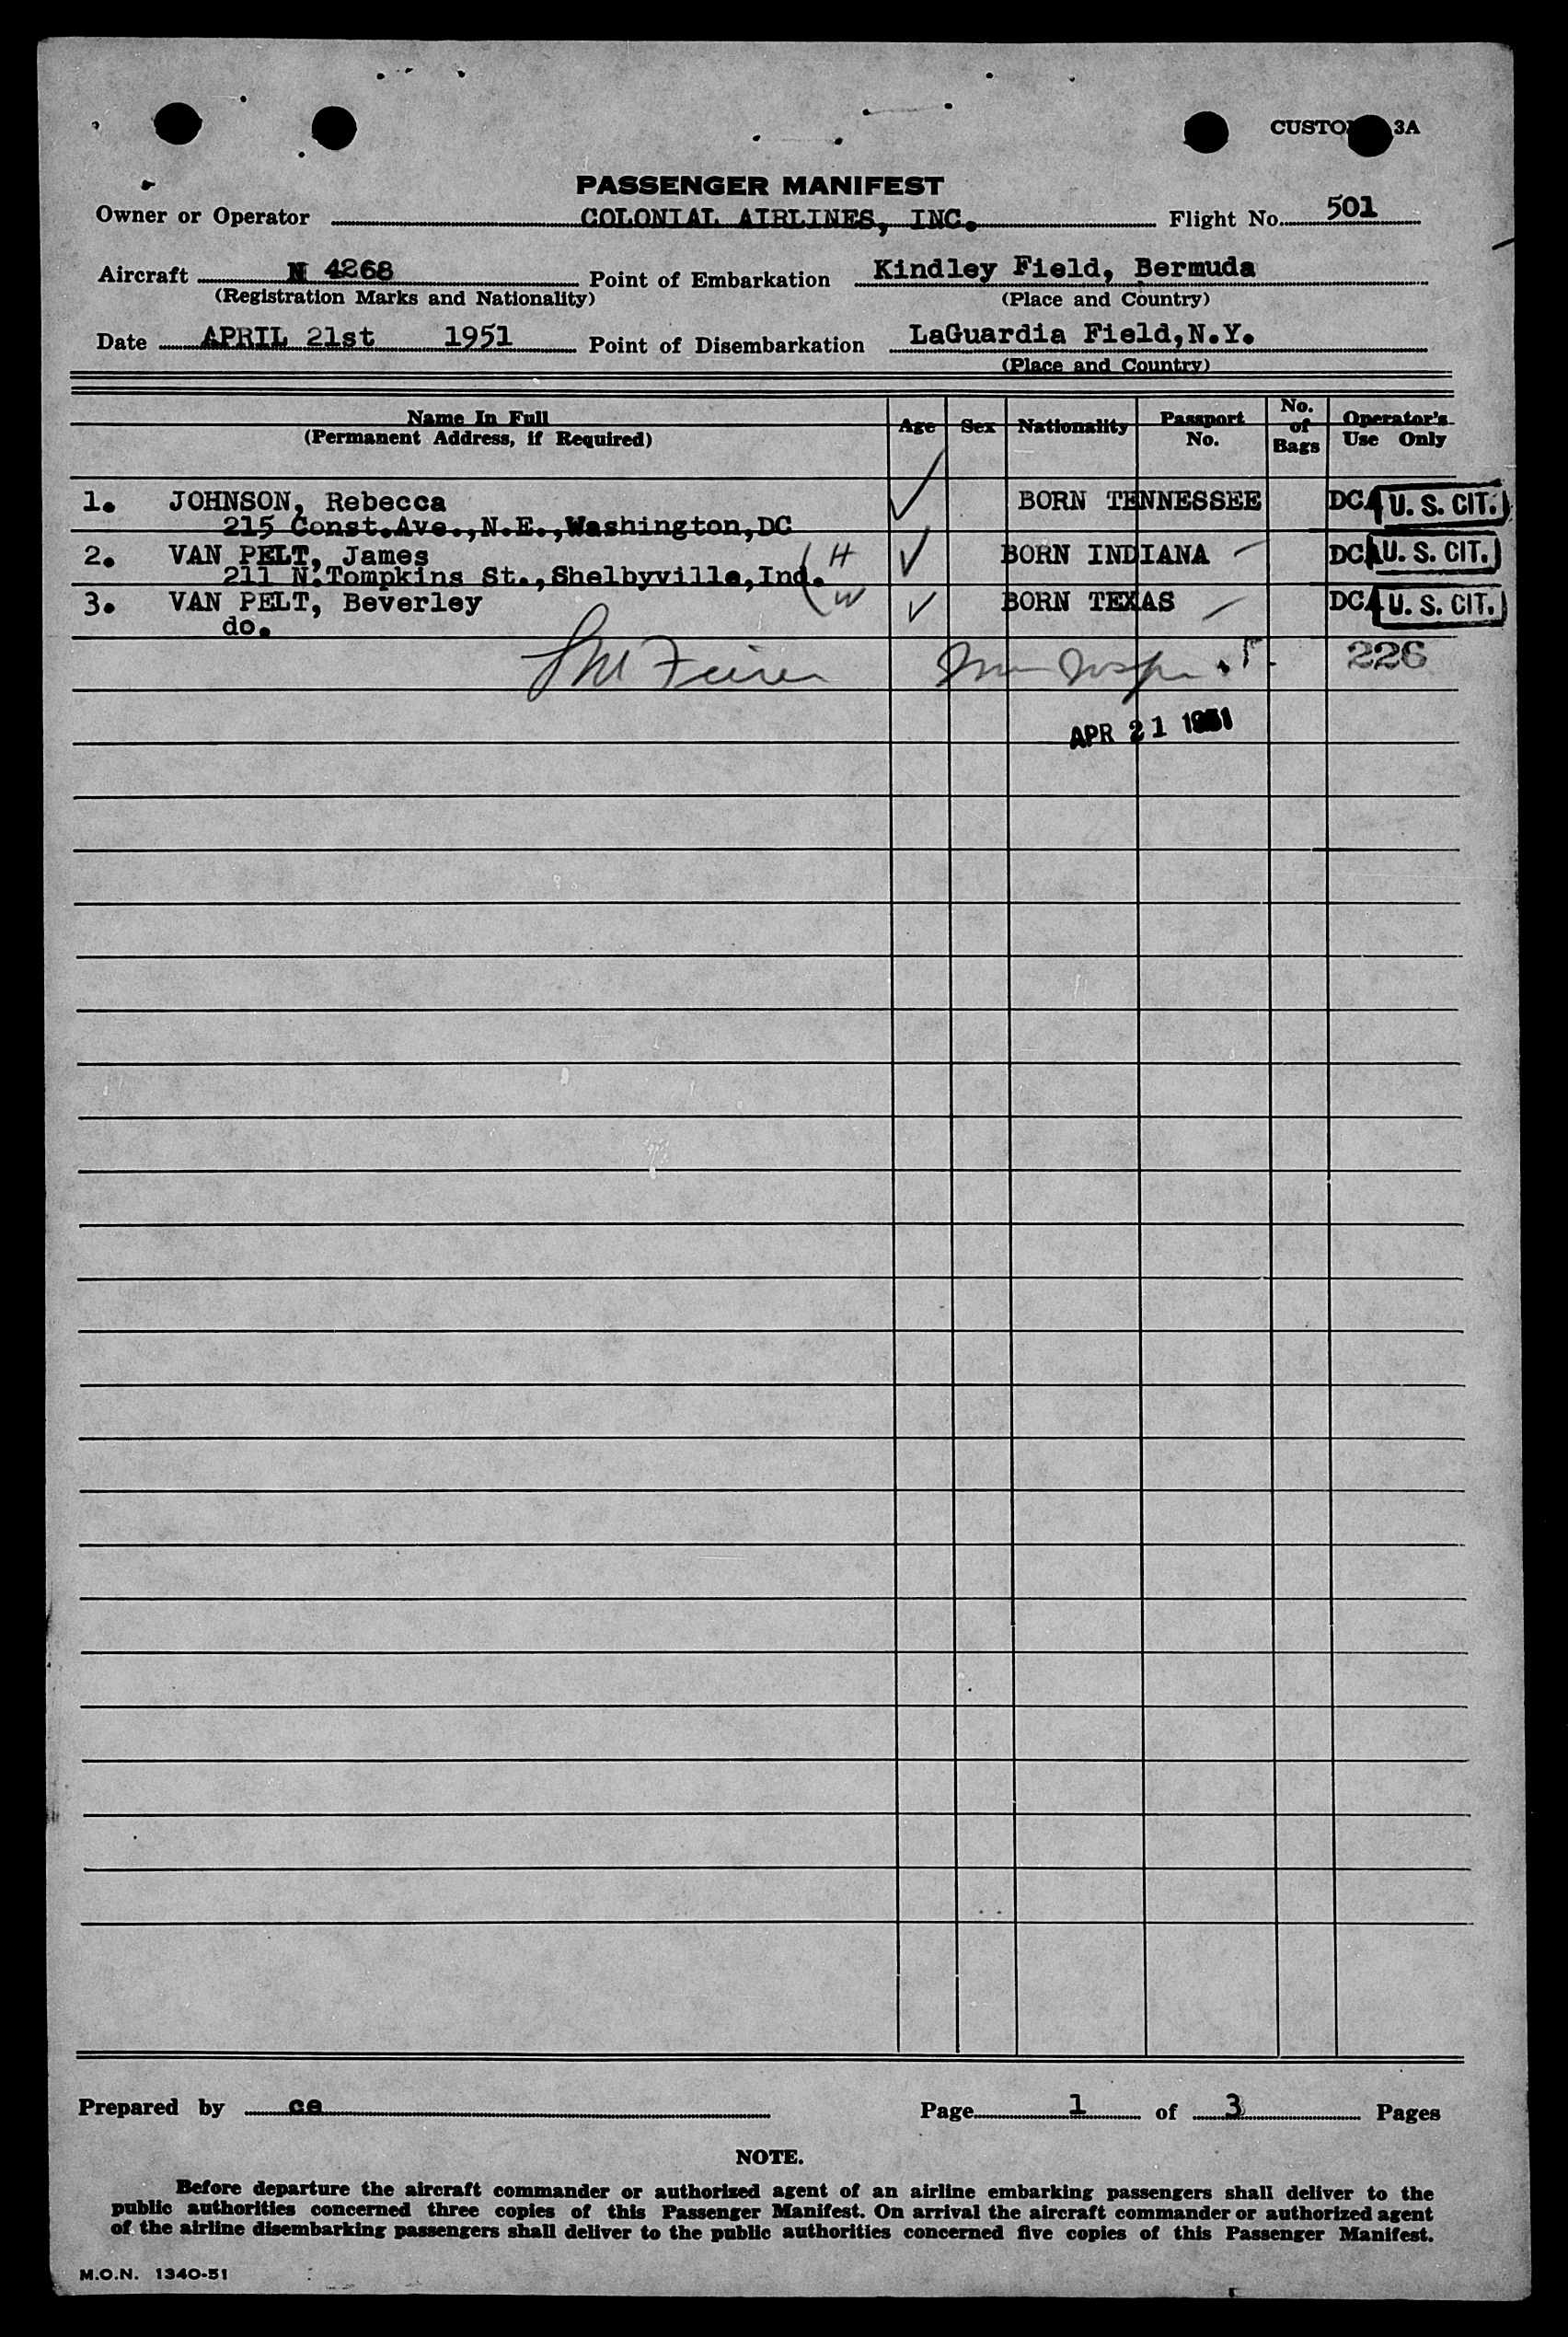 CUSTO 3A
PASSENGER MANIFEST
Owner or Operator COLONIAL AIRLINES, INC. Flight No. 501
Aircraft N 4268 Point of Embarkation Kindley Field, Bermuda
(Registration Marks and Nationality) (Place and Country)
Date APRIL 21st 1951 Point of Disembarkation LaGuardia Field,N.Y.
(Place and Country)
Name In Full Age Sex Nationality Passport No. No. of Bags Operator's Use Only
(Permanent Address, if Required)
1. JOHNSON, Rebecca BORN TENNESSEE DCA U. S. CIT.
215 Const.Ave.,N.E.,Washington,DC
2. VAN PELT, James H BORN INDIANA DCA U. S. CIT.
211 N.Tompkins St.,Shelbyville,Ind.
3. VAN PELT, Beverley W BORN TEXAS DCA U. S. CIT.
do.
226
APR 21 1951
Prepared by ce Page 1 of 3 Pages
NOTE.
Before departure the aircraft commander or authorized agent of an airline embarking passengers shall deliver to the
public authorities concerned three copies of this Passenger Manifest. On arrival the aircraft commander or authorized agent
of the airline disembarking passengers shall deliver to the public authorities concerned five copies of this Passenger Manifest.
M.O.N. 1340-51